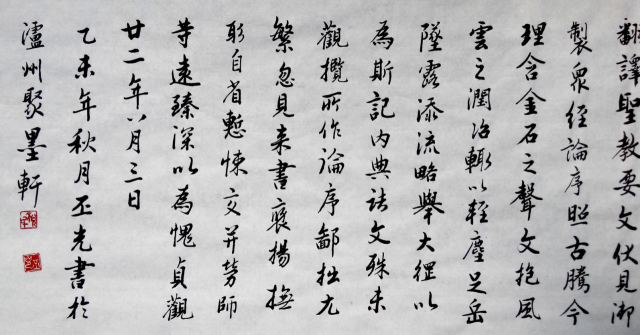 翻譯聖教要文伏見御
製眾經論序照古騰今
理含金石之聲文抱風
雲之潤治輒以輕塵足岳
墜露添流略舉大綱以
為斯記內典諸文殊未
觀攬所作論序鄙拙尤
繁忽見来書褒揚撫
躬自省慙悚交并勞師
等遠臻深以為愧貞觀
廿二年八月三日
乙未年秋月丕光書於
瀘州聚墨軒